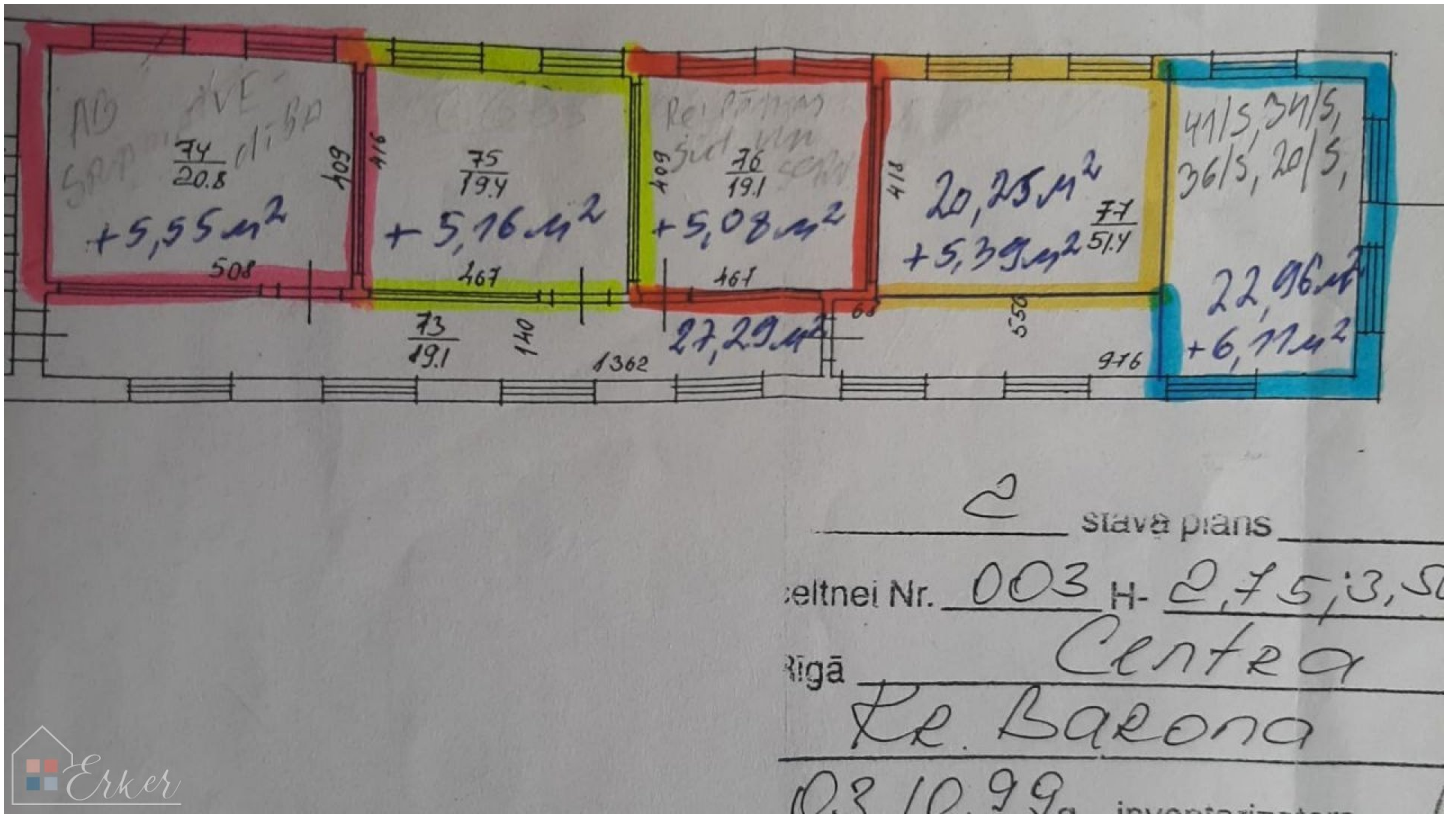 74
20.8
+5,55м²
508
409
416
75
19.4
+5,16м²
467
409
76
19.1
+5,08м²
467
418
20,25м²
+5,39м²
77
51.4
41/5, 34/5,
36/5, 20/5,
22,96м²
+6,11м²
73
19.1
140
1362
27,29м²
550
976
2 stāva plāns
celtnei Nr. 003 H- 2,75;3,50
Rīgā Centra
Kr. Barona
03.10.99
Erker